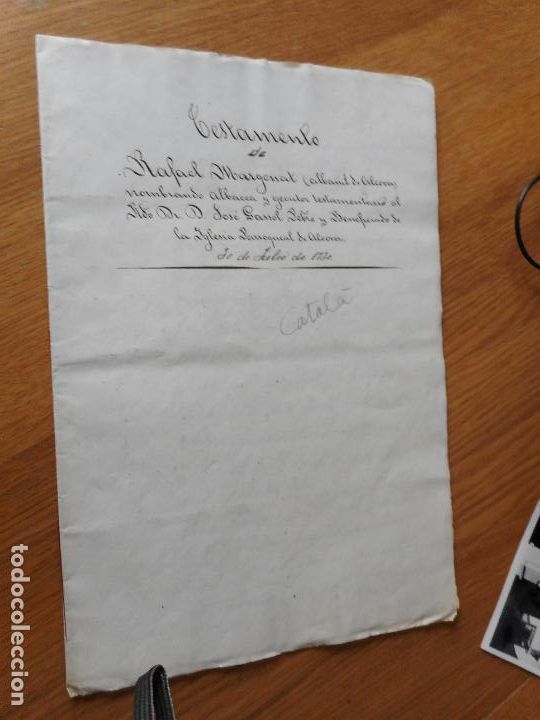 Testamento
de
Rafael Margenat (albañil de Alcover)
nombrando Albacea y ejecutor testamentario al
Rdo Dr. D. José Gassol Pbro y Beneficiado de
la Iglesia Parroquial de Alcover.
30 de Julio de
Català
todocoleccion.net